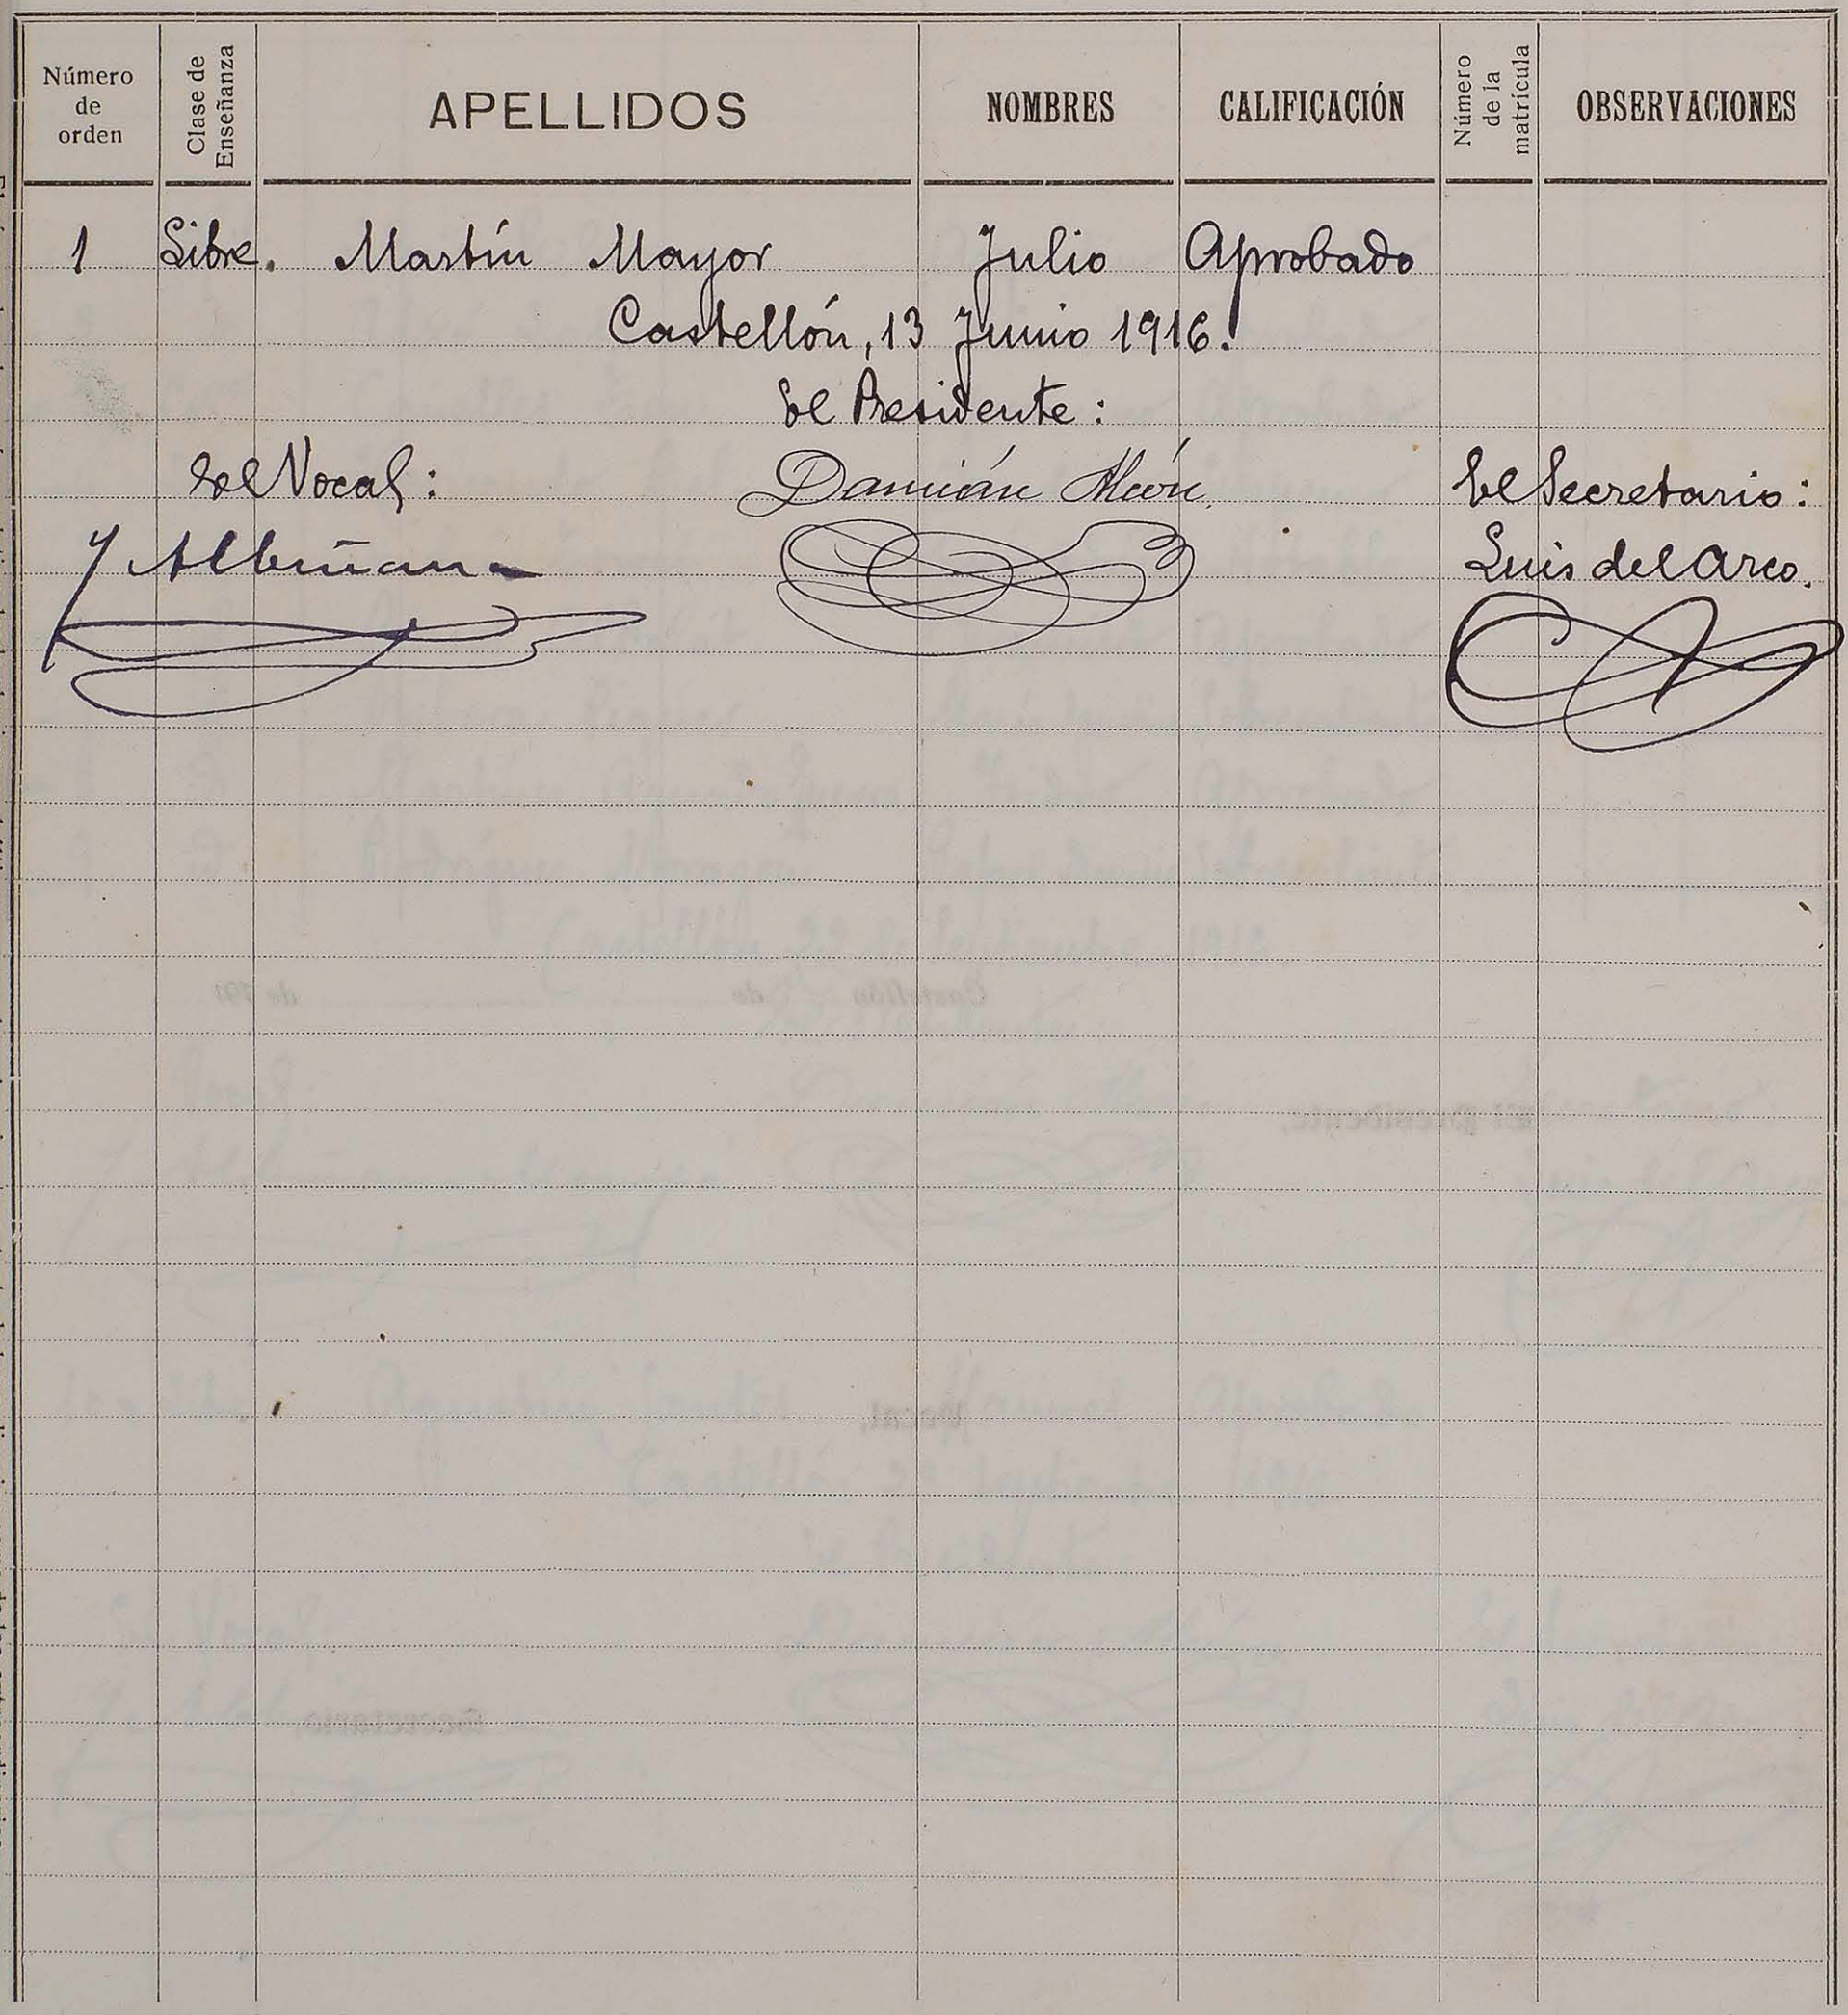 Número de orden Clase de Enseñanza APELLIDOS NOMBRES CALIFICACIÓN Número de la matrícula OBSERVACIONES
1 Libre. Martín Mayor Julio Aprobado
Castellón, 13 Junio 1916.
El Presidente:
El Vocal: Damián Alcón El Secretario:
J Albiñana Luis del Arco.